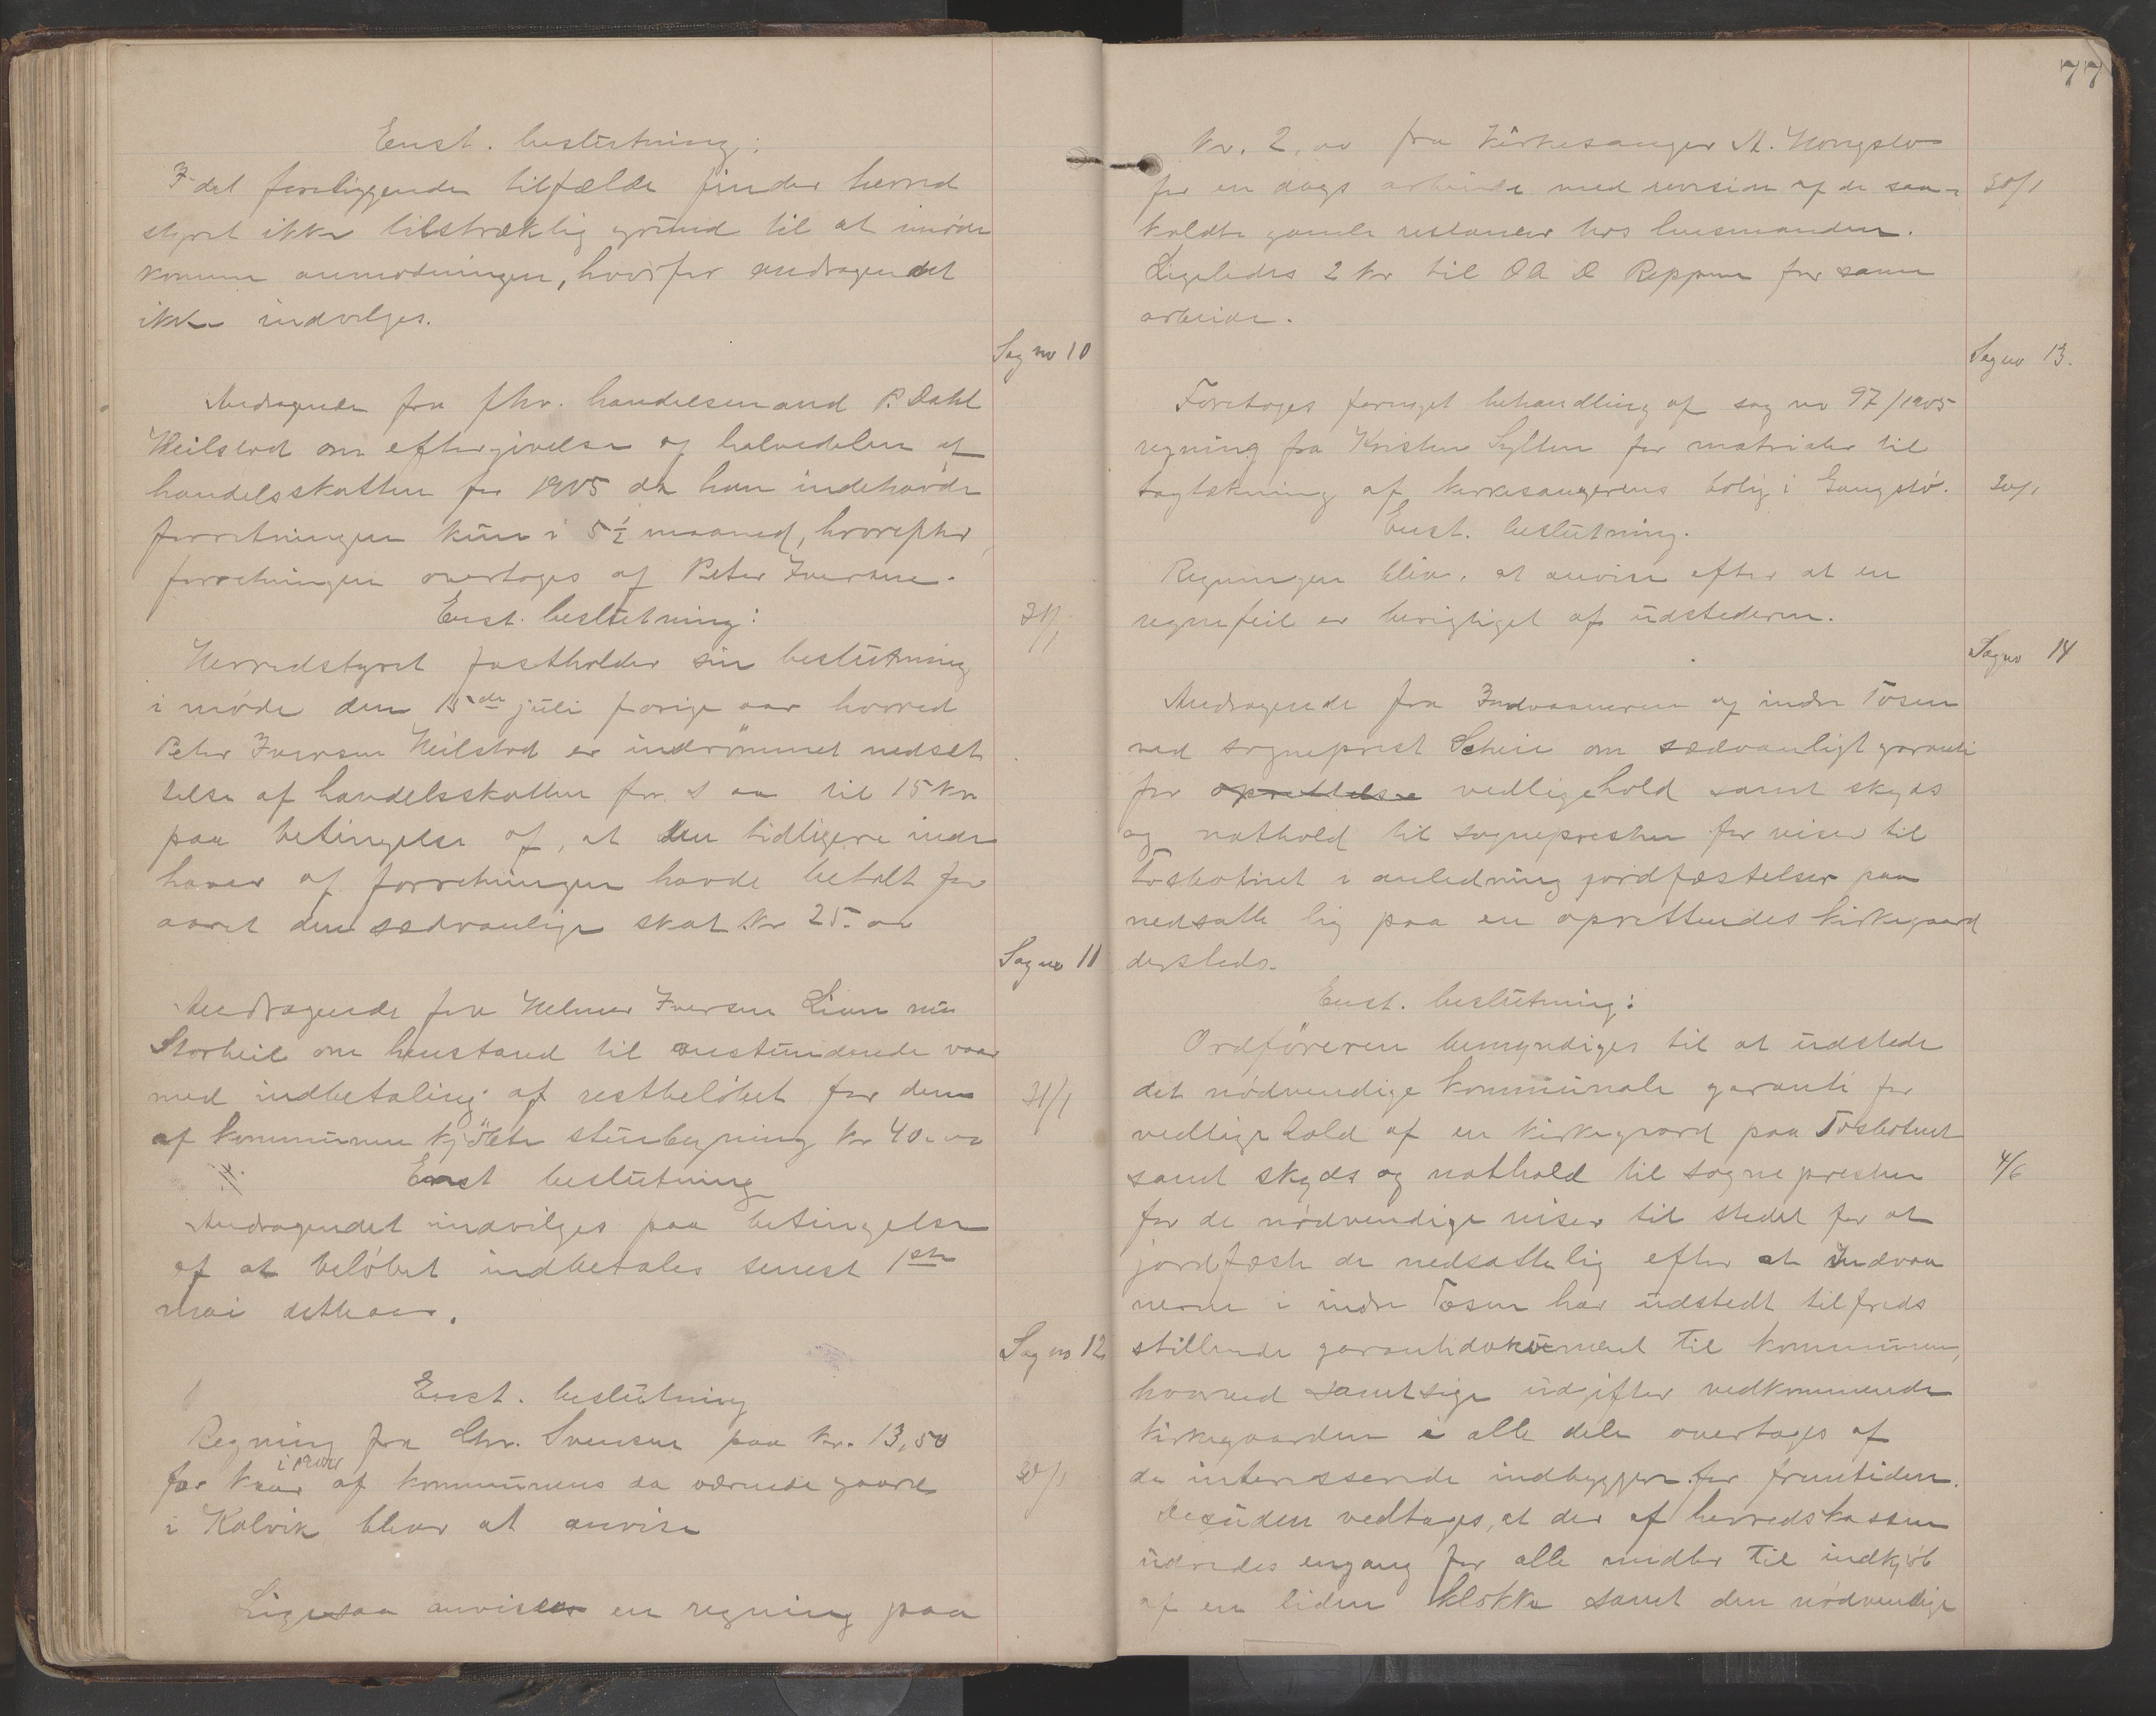 Enst. beslutning:
I det foreliggende tilfælde finder herred
styret ikke tilstrækkelig grund til at imøde
komme anmodningen, hvorfor andragendet
ikke indvilges.
Sag no 10
Andragende fra fhv. handelsmand P. Dahl
Heilstad om eftergivelse af halvedelen af
handelsskatten for 1905 da han indehavde
forretningen kun i 5½ maaned, hvorefter
forretningen overtoges af Peter Iversen.
Enst. beslutning:
31/1
Herredstyret fastholder sin beslutning
i møde den 15de juli forige aar hvorved
Peter Iversen Heilstad er indrømmet nedsæt
telse af handelsskatten for s aa til 15 kr
paa betingelse af, at den tidligere inde
haver af forretningen havde betalt for
aaret den sædvanlige skat kr 25.00
Sag no 11
Andragende fra Helmer Iversen Lian nu
Storheil om henstand til anstundende vaar
med indbetaling af restbeløbet for den
31/1
af kommunen kjøbte stuebygning kr 40.00
Enst beslutning
Andragendet indvilges paa betingelse
af at beløbet indbetales senest 1ste
mai dette aar.
Sag no 12
Enst. beslutning
Regning fra Chr. Svensen paa kr. 13,50
for af kommunens da værende gaard
30/1
i Kalvik blev at anvise
Ligesaa anvises en regning paa
77
kr. 2,00 fra Kirkesanger M. Hongslo
for en dags arbeide med revision af de saa-
30/1
kaldte gamle restancer hos lensmanden.
Ligeledes 2 kr til O A O Reppen for samme
arbeide.
Sag no 13.
Foretages fornyet behandling af sag no 97/1905
regning fra Kristen Sylten for matrialer til
tagtækning af kirkesangerens bolig i Gangstø.
30/1
Enst. beslutning.
Regningen blev at anvise efter at en
regnefeil er berigtiget af udstederen.
Sag no 14
Andragende fra Indvaanerne af indre Tosen
ved sogneprest Scheie om sædvanligt garanti
for oprettelse vedligehold samt skyds
og nathold til sognepresten for reiser til
Tosbotnet i anledning jordfæstelser paa
nedsatte lig paa en oprettendes kirkegaard
dersteds.
Enst. beslutning:
Ordføreren bemyndiges til at udstede
det nødvendige kommunale garanti for
vedligehold af en kirkegaard paa Tosbotnet
samt skyds og nathold til sognepresten
4/6
for de nødvendige reiser til stedet for at
jordfæste de nedsatte lig efter at indvaa
nerne i indre Tosen har udstedt tilfreds
stillende garantidokument til kommunen,
hvorved samtlige udgifter vedkommende
kirkegaarden i alle dele overtages af
de interesserede indbyggere for fremtiden.
Desuden vedtages, at der af herredskassen
udredes engang for alle midler til indkjøb
af en liden klokke samt den nødvendige